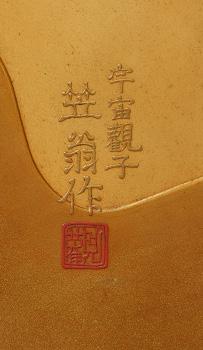 宇宙觀子
笠翁作